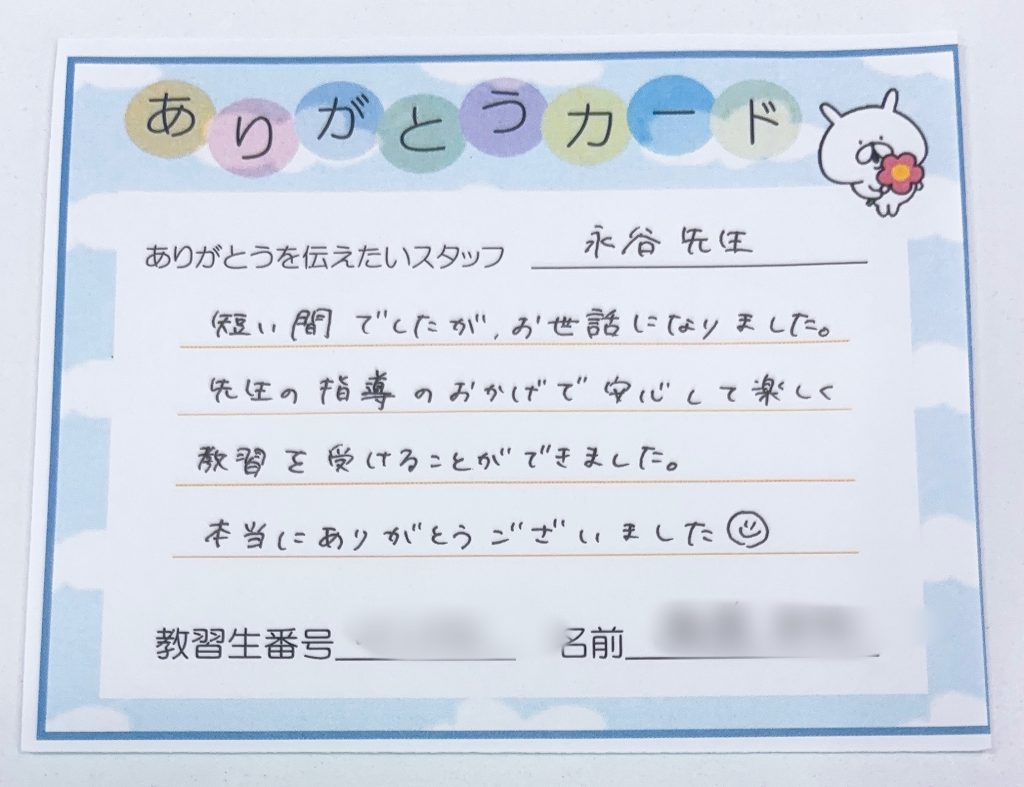 ありがとうカード
ありがとうを伝えたいスタッフ 永谷先生
短い間でしたが、お世話になりました。
先生の指導のおかげで安心して楽しく
教習を受けることができました。
本当にありがとうございました
教習生番号 名前